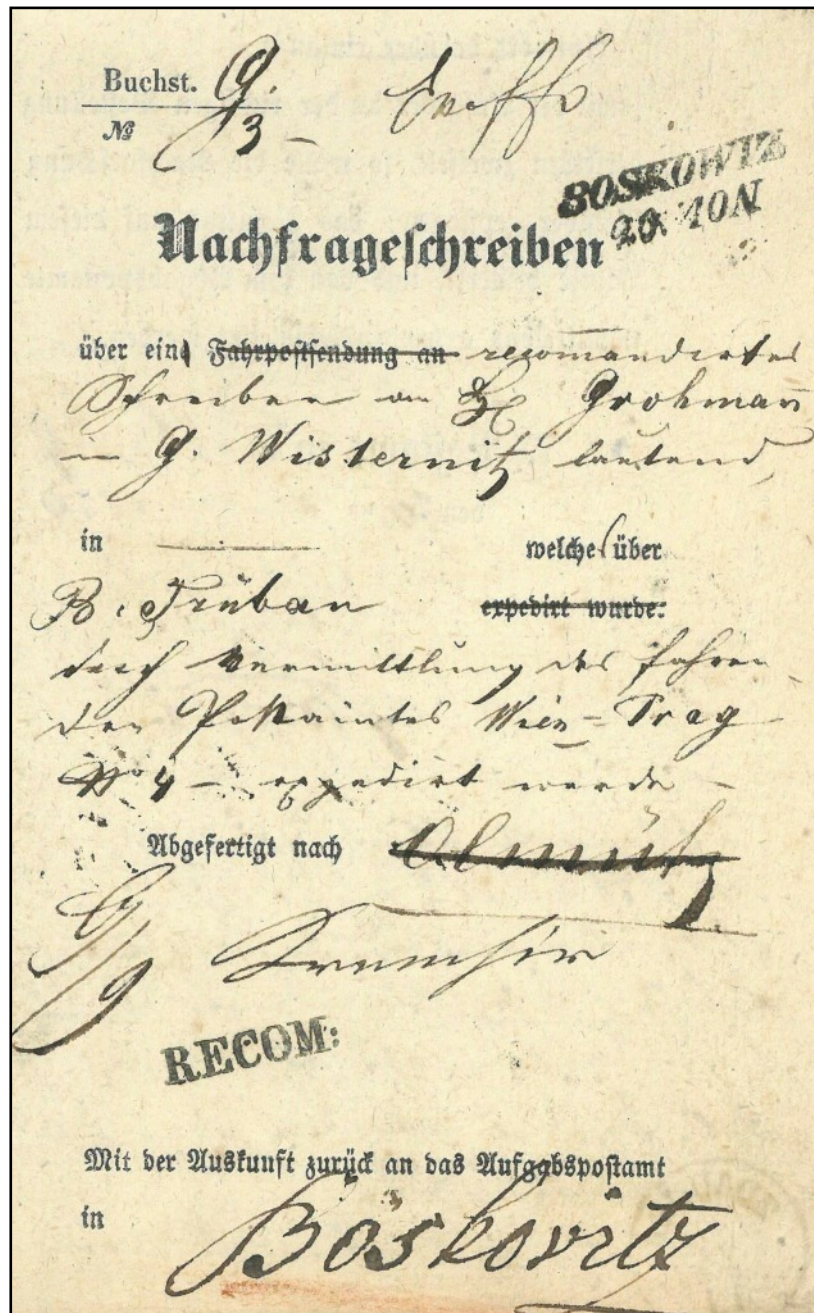 Buchst. G.
№ 3 –
BOSKOWITZ
20. NOV
Nachfrageschreiben
über eine Fahrpostsendung an recommandirtes
Schreiben an H Grohmann
in G. Wisternitz lautend,
in welches über
B. Trübau expedirt wurde:
durch Vermittlung des fahren-
den Postamtes Wien – Prag
No 4 – expedirt wurde –
Abgefertigt nach Olmütz
RECOM:
Mit der Auskunft zurück an das Aufgabspostamt
in Boskovitz